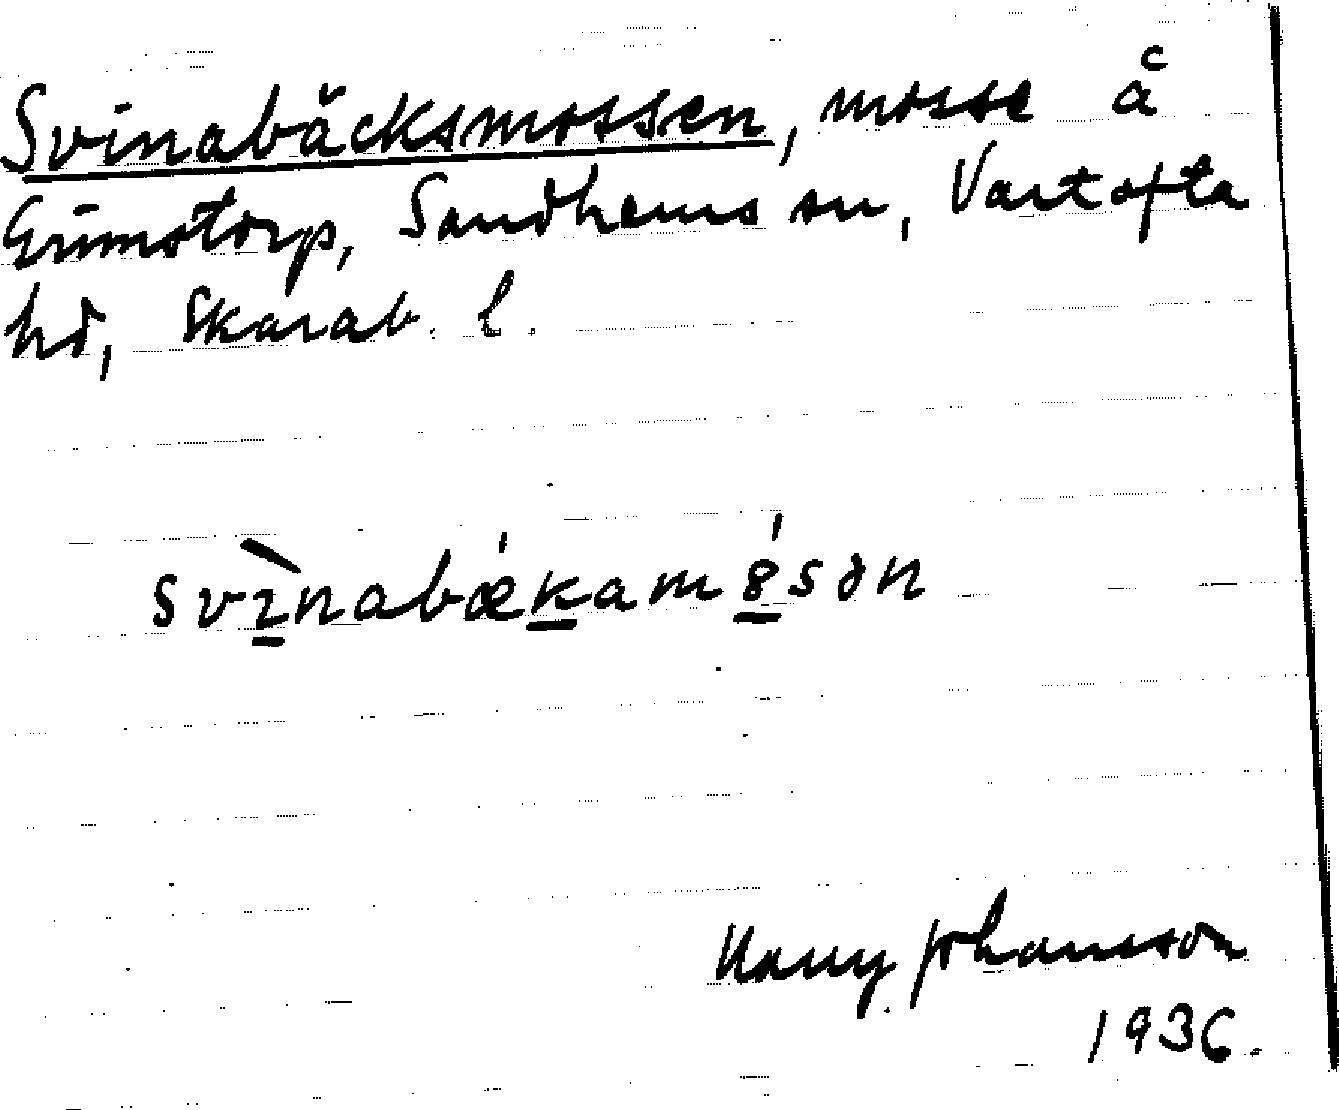 Svinabäcksmossen, mosse å
Grimstorp, Sandhems sn, Vartofta
hd, Skarab. l.
svìnabǽkamósən
Harry Johansson
1936.